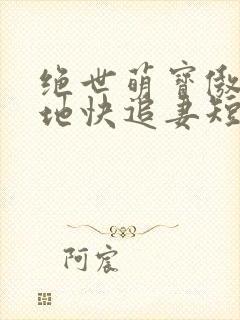 绝世萌宝傲
地快追妻短
阿宸